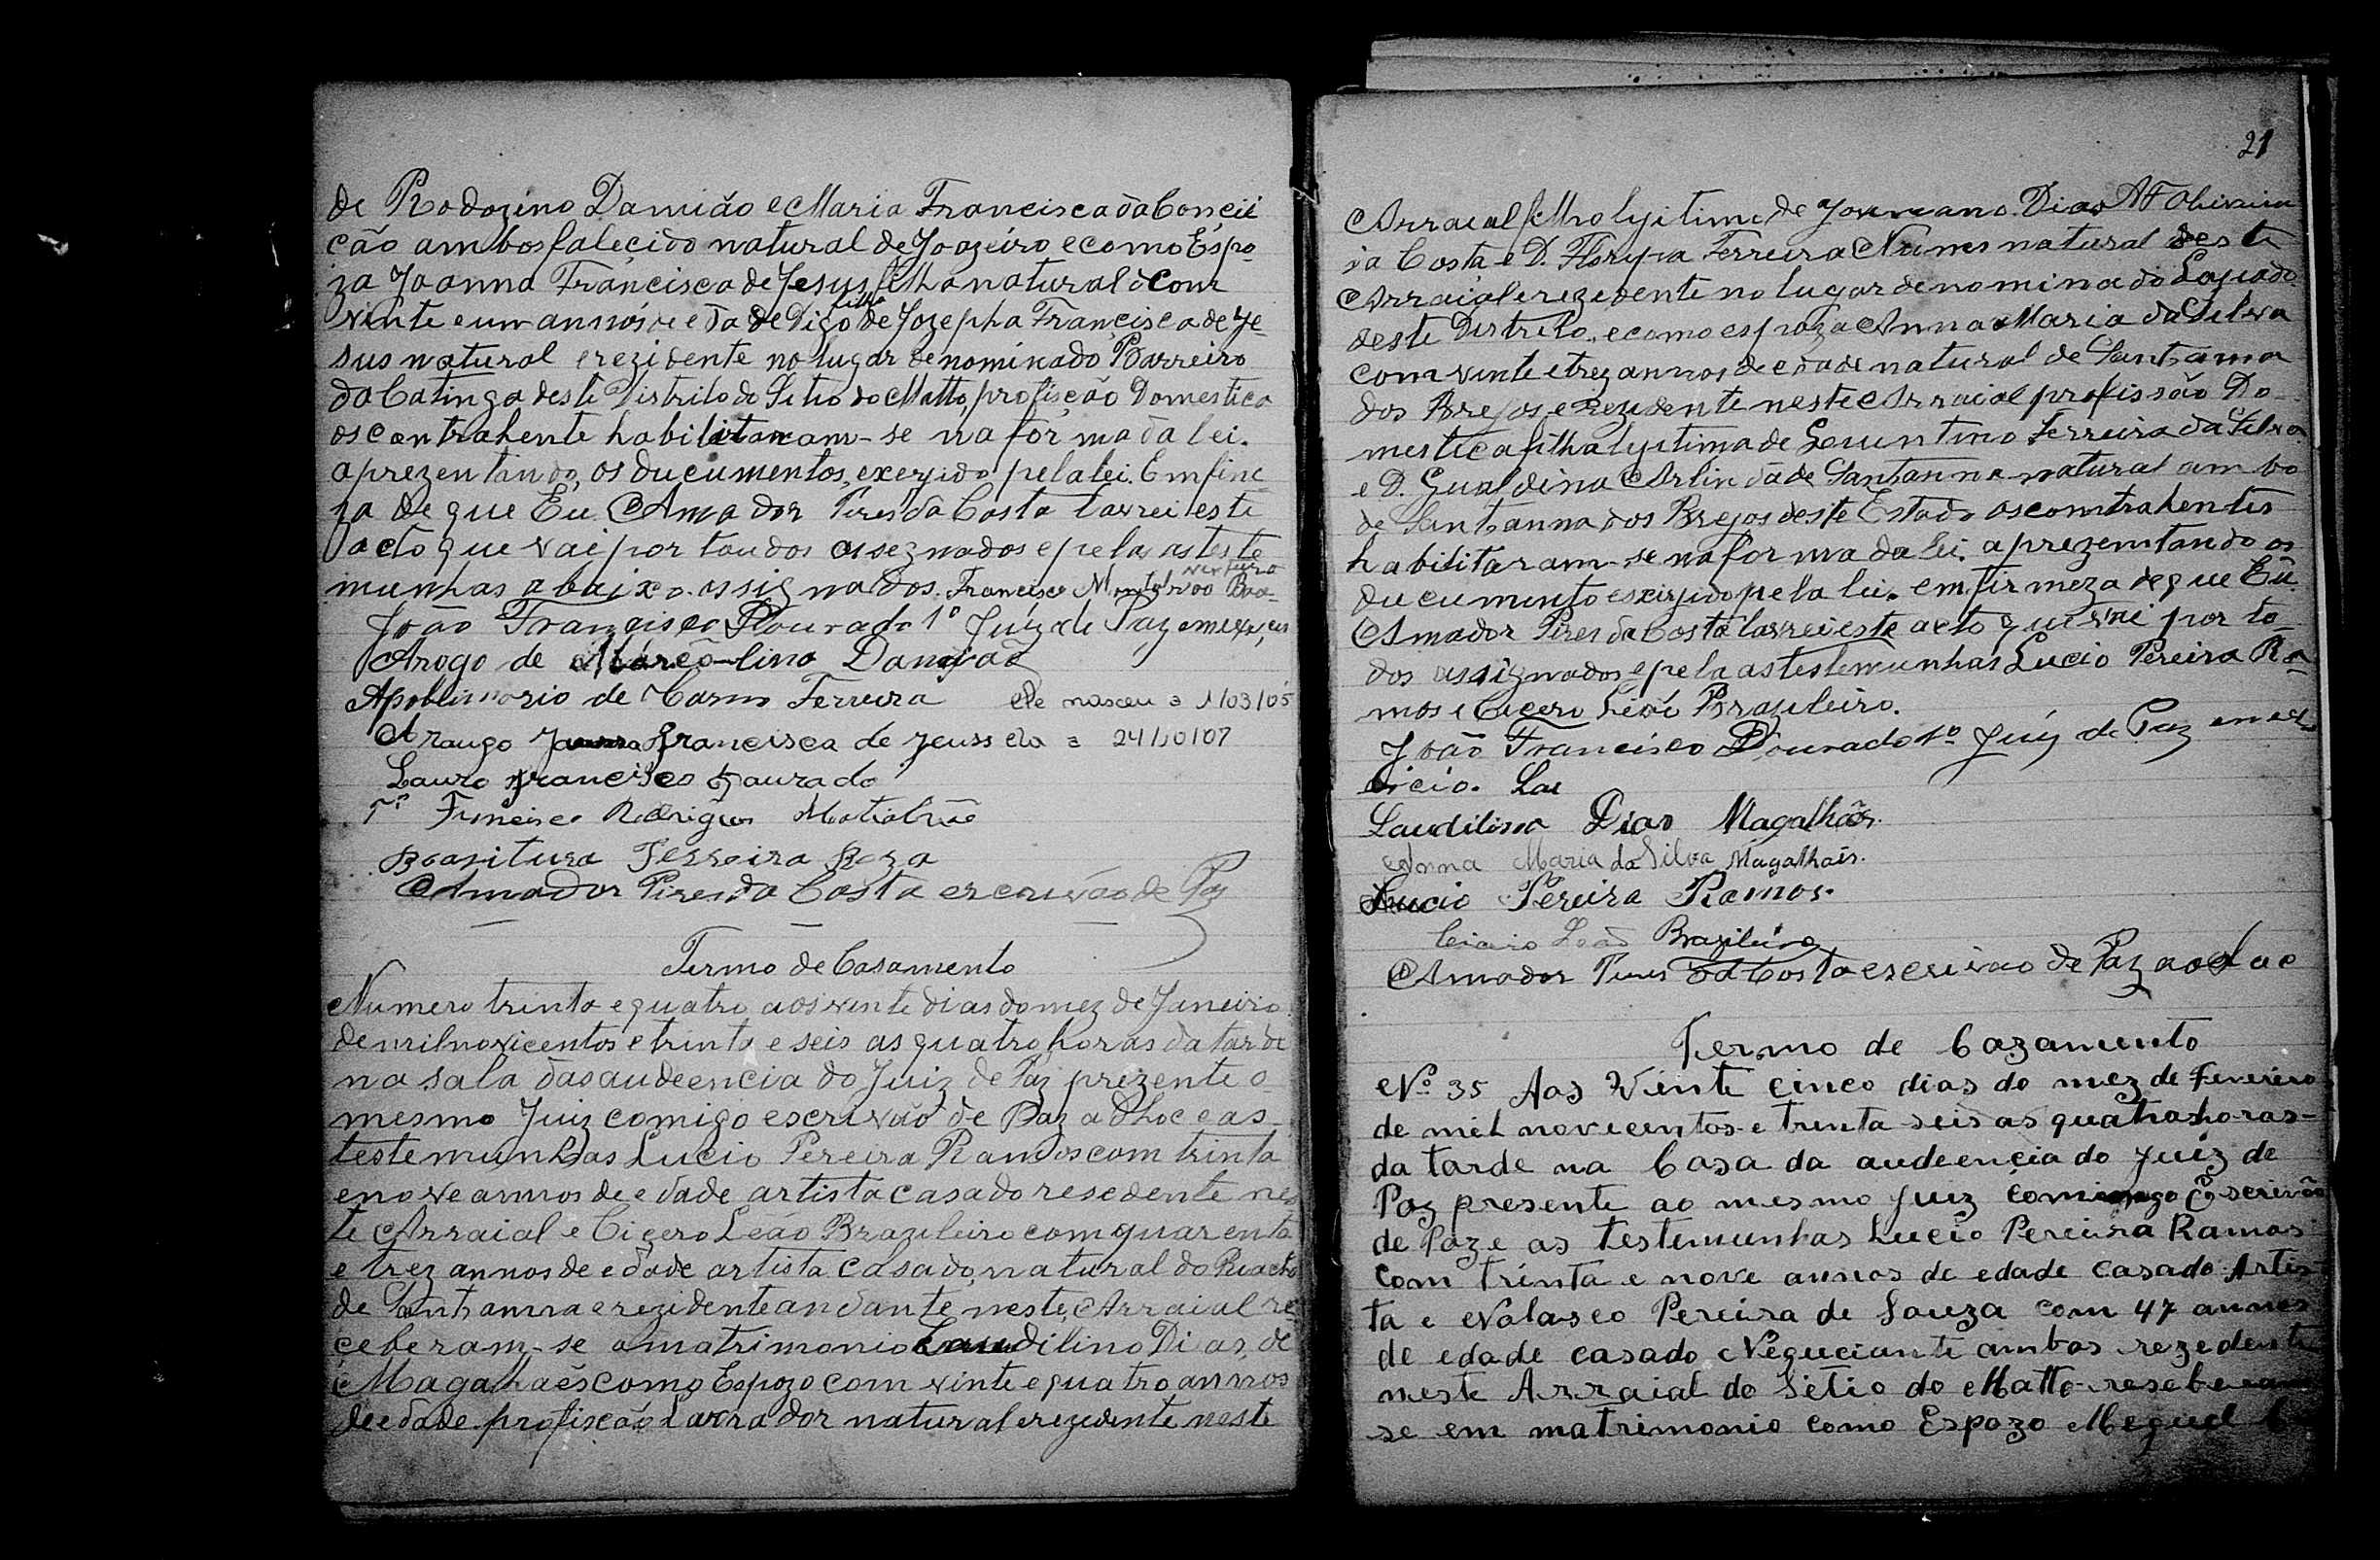 de Rodozino Damião e Maria Francisca da Conceii
ção ambos falecido natural de Joazeiro e como Espo-
za Joanna Francisca de Jesus filha natural com
vinte e um annos de edade Digo filha de Jozepha Francisca de Je-
sus natural e rezidente no lugar denominado Barreiro
da Catinga deste Distrito do Sitio do Matto, profisção Domestica
os contrahente habilitaram-se na forma da lei.
aprezentando, os ducumentos, exegido pela lei. Em firme-
za de que Eu Amador Pires da Costa lavrei este
acto que vai por toudos assegnados e pelas as teste
munhas abaixo assignados. Francisco
João Francisco Dourado 1º Juiz de Paz em
Arogo de Marcolino Damião
de Carmo Ferreira ele nasceu a 1/03/05
Araugo Joanna Francisca de Jeuss ela a 24/10/07
Lauro Francisco Dourado
Francisco Rodrigues
Boaventura Ferreira Roza
Amador Pires da Costa escrivão de Paz
Termo de Casamento
Numero trinta e quatro aos vinte dias do mez de Janeiro
de mil novicentos e trinta e seis as quatro horas da tarde
na sala das audeencia do Juiz de Paz prezente o
mesmo Juiz comigo escrivão de Paz adhoc e as
testemunhas Lucio Pereira Ramos com trinta
e nove annos de edade artista casado resedente nes
te Arraial e Cicero Leão Brazileiro com quarenta
e trez annos de edade artista casado, natural do Riacho
de Santanna e rezidente andante, neste, Arraial re-
ceberam-se a matrimonio Laudilino Dias de
Magalhaẽs como Espozo com vinte e quatro annos
de edade profisção Lavrador natural e rezidente neste
21
Arraial filho lyitimo de Dias Oliveira
da Costa e D. Ferreira Nunes natural deste
Arraial e rezedente no lugar denominado Lagoado
deste Distrito, e como espoza Anna Maria da Silva
com vinte e trez annos de edade natural de Santanna
dos Brejos e Rezidente neste Arraial profissão Do-
mestica filha lyitima de Ferreira da Silva
e D. Gualdina Arlinda de Santanna natural ambo
de Santanna dos Brejos deste Estado os comtrahentes
habilitaram-se na forma da lei. aprezentando os
ducumento exegido pela lei. em firmeza de que Eu
Amador Pires da Costa lavrei este acto que vai por to-
dos assignados e pela as testemunhas Lucio Pereira Ra-
mos e Cicero Leão Brazileiro.
João Francisco Dourado 1º Juiz de Paz em ex
ercicio. Lau
Laudilino Dias Magalhães.
Anna Maria da Silva Magalhais.
Lucio Pereira Ramos.
Cicero Leão Brazileiro
Amador Pires da Costa escrivão de Paz
Termo de Cazamento
Nº 35 Aos Vinte cinco dias do mez de Fevereiro
de mil novecentos e trenta seis as quatro horas-
da tarde na Casa da audeencia do Juiz de
Paz presente ao mesmo Juiz comigo Escrivão
de Paz e as testemunhas Lucio Pereira Ramos
Com trinta e nove annos de edade casado Artis-
ta e Nolasco Pereira de Souza com 47 annos
de edade casado Neguciante ambos rezedente
neste Arraial do Sitio do Matto reseberam
se em matrimonio como Espozo Meguel